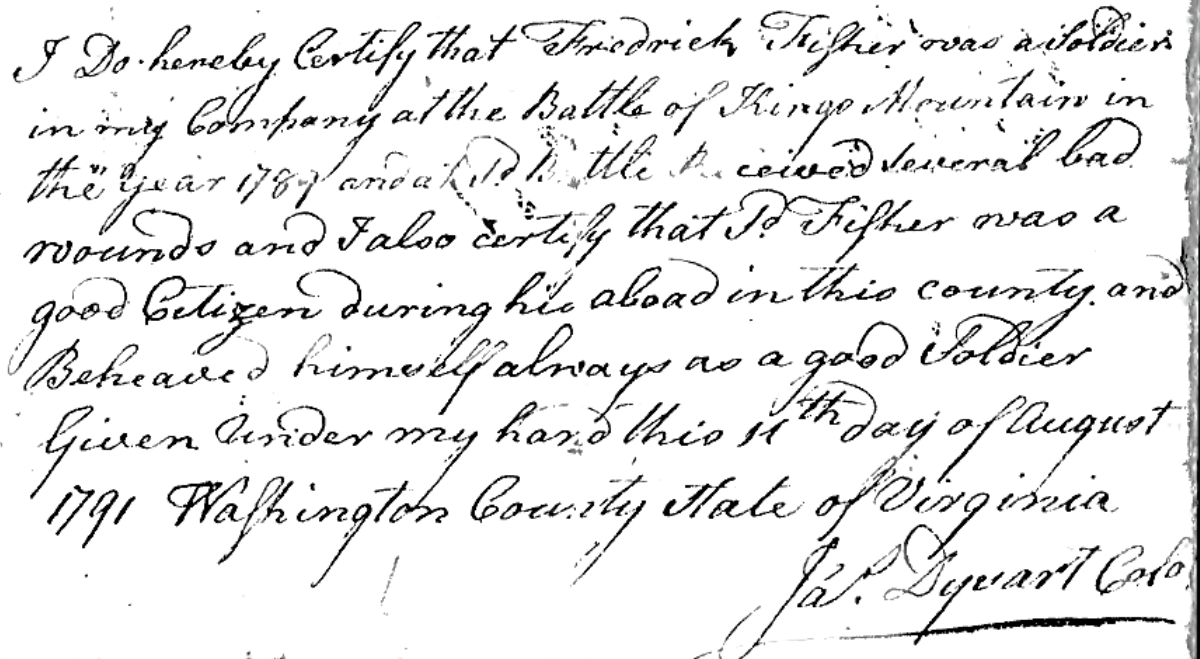 I Do hereby Certify that Fredrick Fisher was a Soldier
in my Company at the Battle of Kings Mountain in
the year 1787 and at Sd Battle Received Several bad
wounds and I also certify that Sd Fisher was a
good Citizen during his aboad in this county and
Beheaved himself always as a good Soldier
Given Under my hand this 11th day of August
1791 Washington County State of Virginia
Jas. Dysart Colo